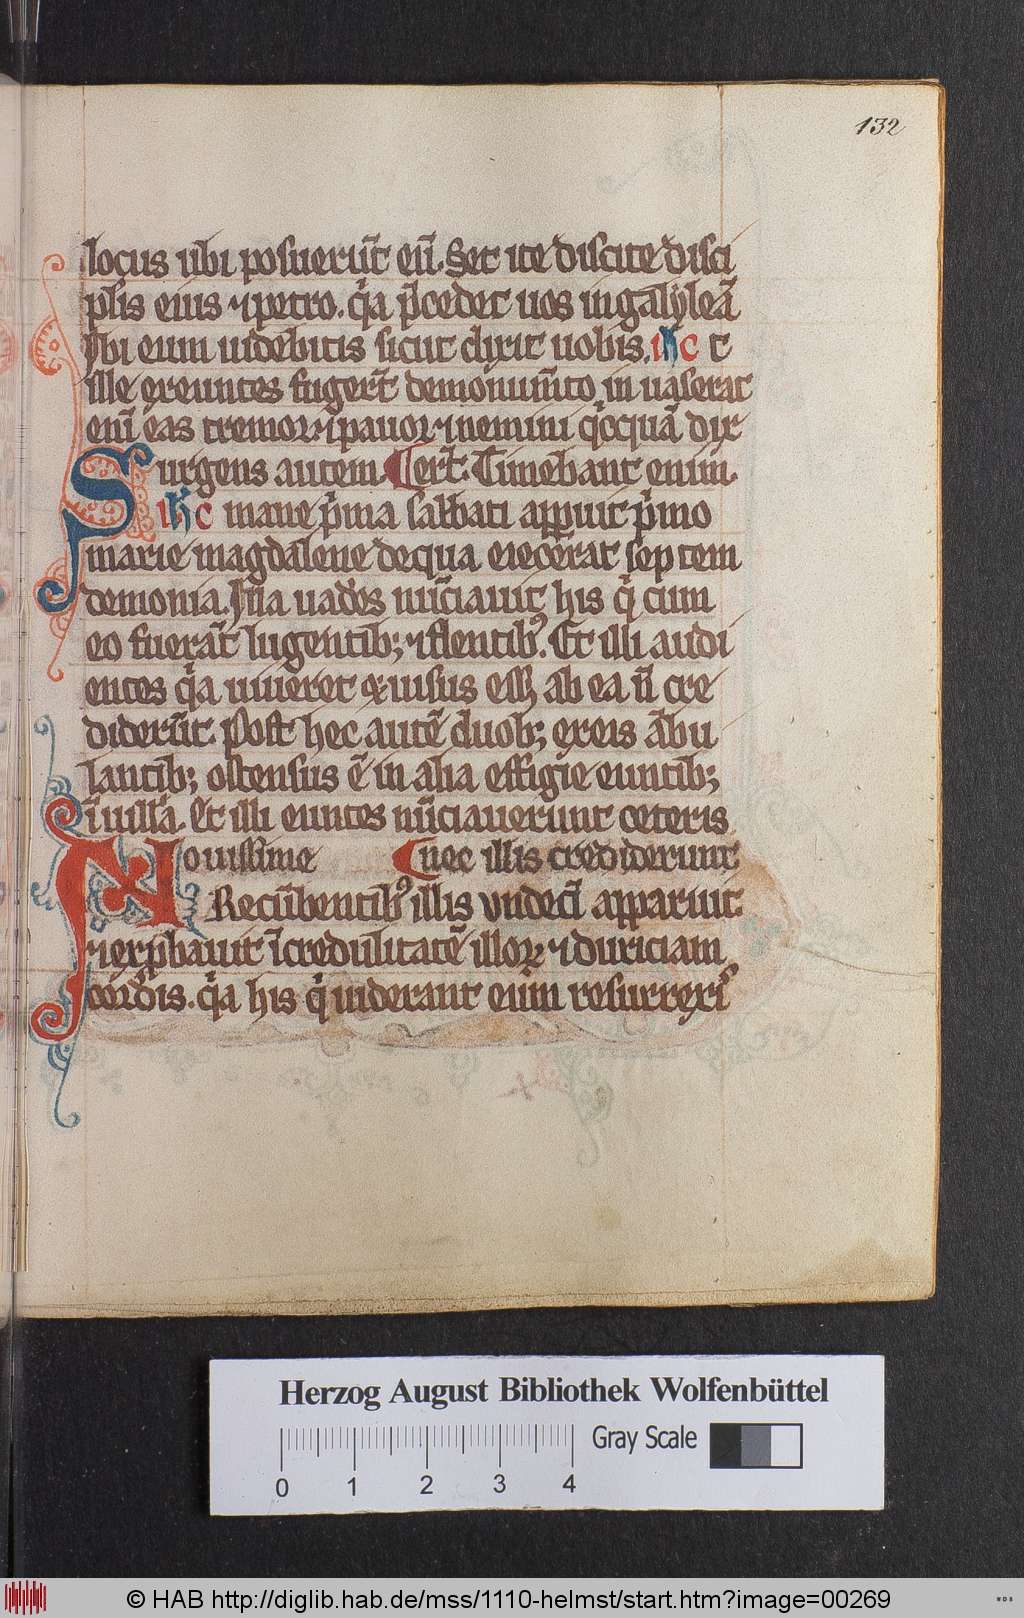 132
locus ubi posuerūt eū. Set ite discite disci
plis eius ⁊ petro. qͥa p̄cedet uos in galyleā
Ibi eum uidebitis sicut dixit uobis. ihc t
ille exeuntes fugerūt de monum̄to in uaserat
enī eas tremor ⁊ pauor ⁊ nemini qͥcquā dix
Surgens autem ert̄. Timebant enim.
ihc mane pͥma sabbati appuit pͥmo
marie magdalene de qua eiecerat septem
demonia. Illa uadēs nūciauit his qͥ cum
eo fuerāt lugentib; ⁊ flentibꝰ. Et illi audi
entes qͥa uiueret ⁊ uisus ess; ab ea n̄ cre
diderūt. Post hec autē duob; ex eis ābu
lantib; ostensus ē in alia effigie euntib;
ī uillā. Et illi euntes nūciauerunt ceteris
Nouissime nec illis crediderunt
Recūbentibꝰ illis undecī apparuit
⁊ exp̄bauit īcredulitatē illoꝝ ⁊ duriciam
cordis. qͥa his qͥ uiderant eum resurrexiꝰ
Herzog August Bibliothek Wolfenbüttel
0 1 2 3 4 Gray Scale
© HAB http://diglib.hab.de/mss/1110-helmst/start.htm?image=00269